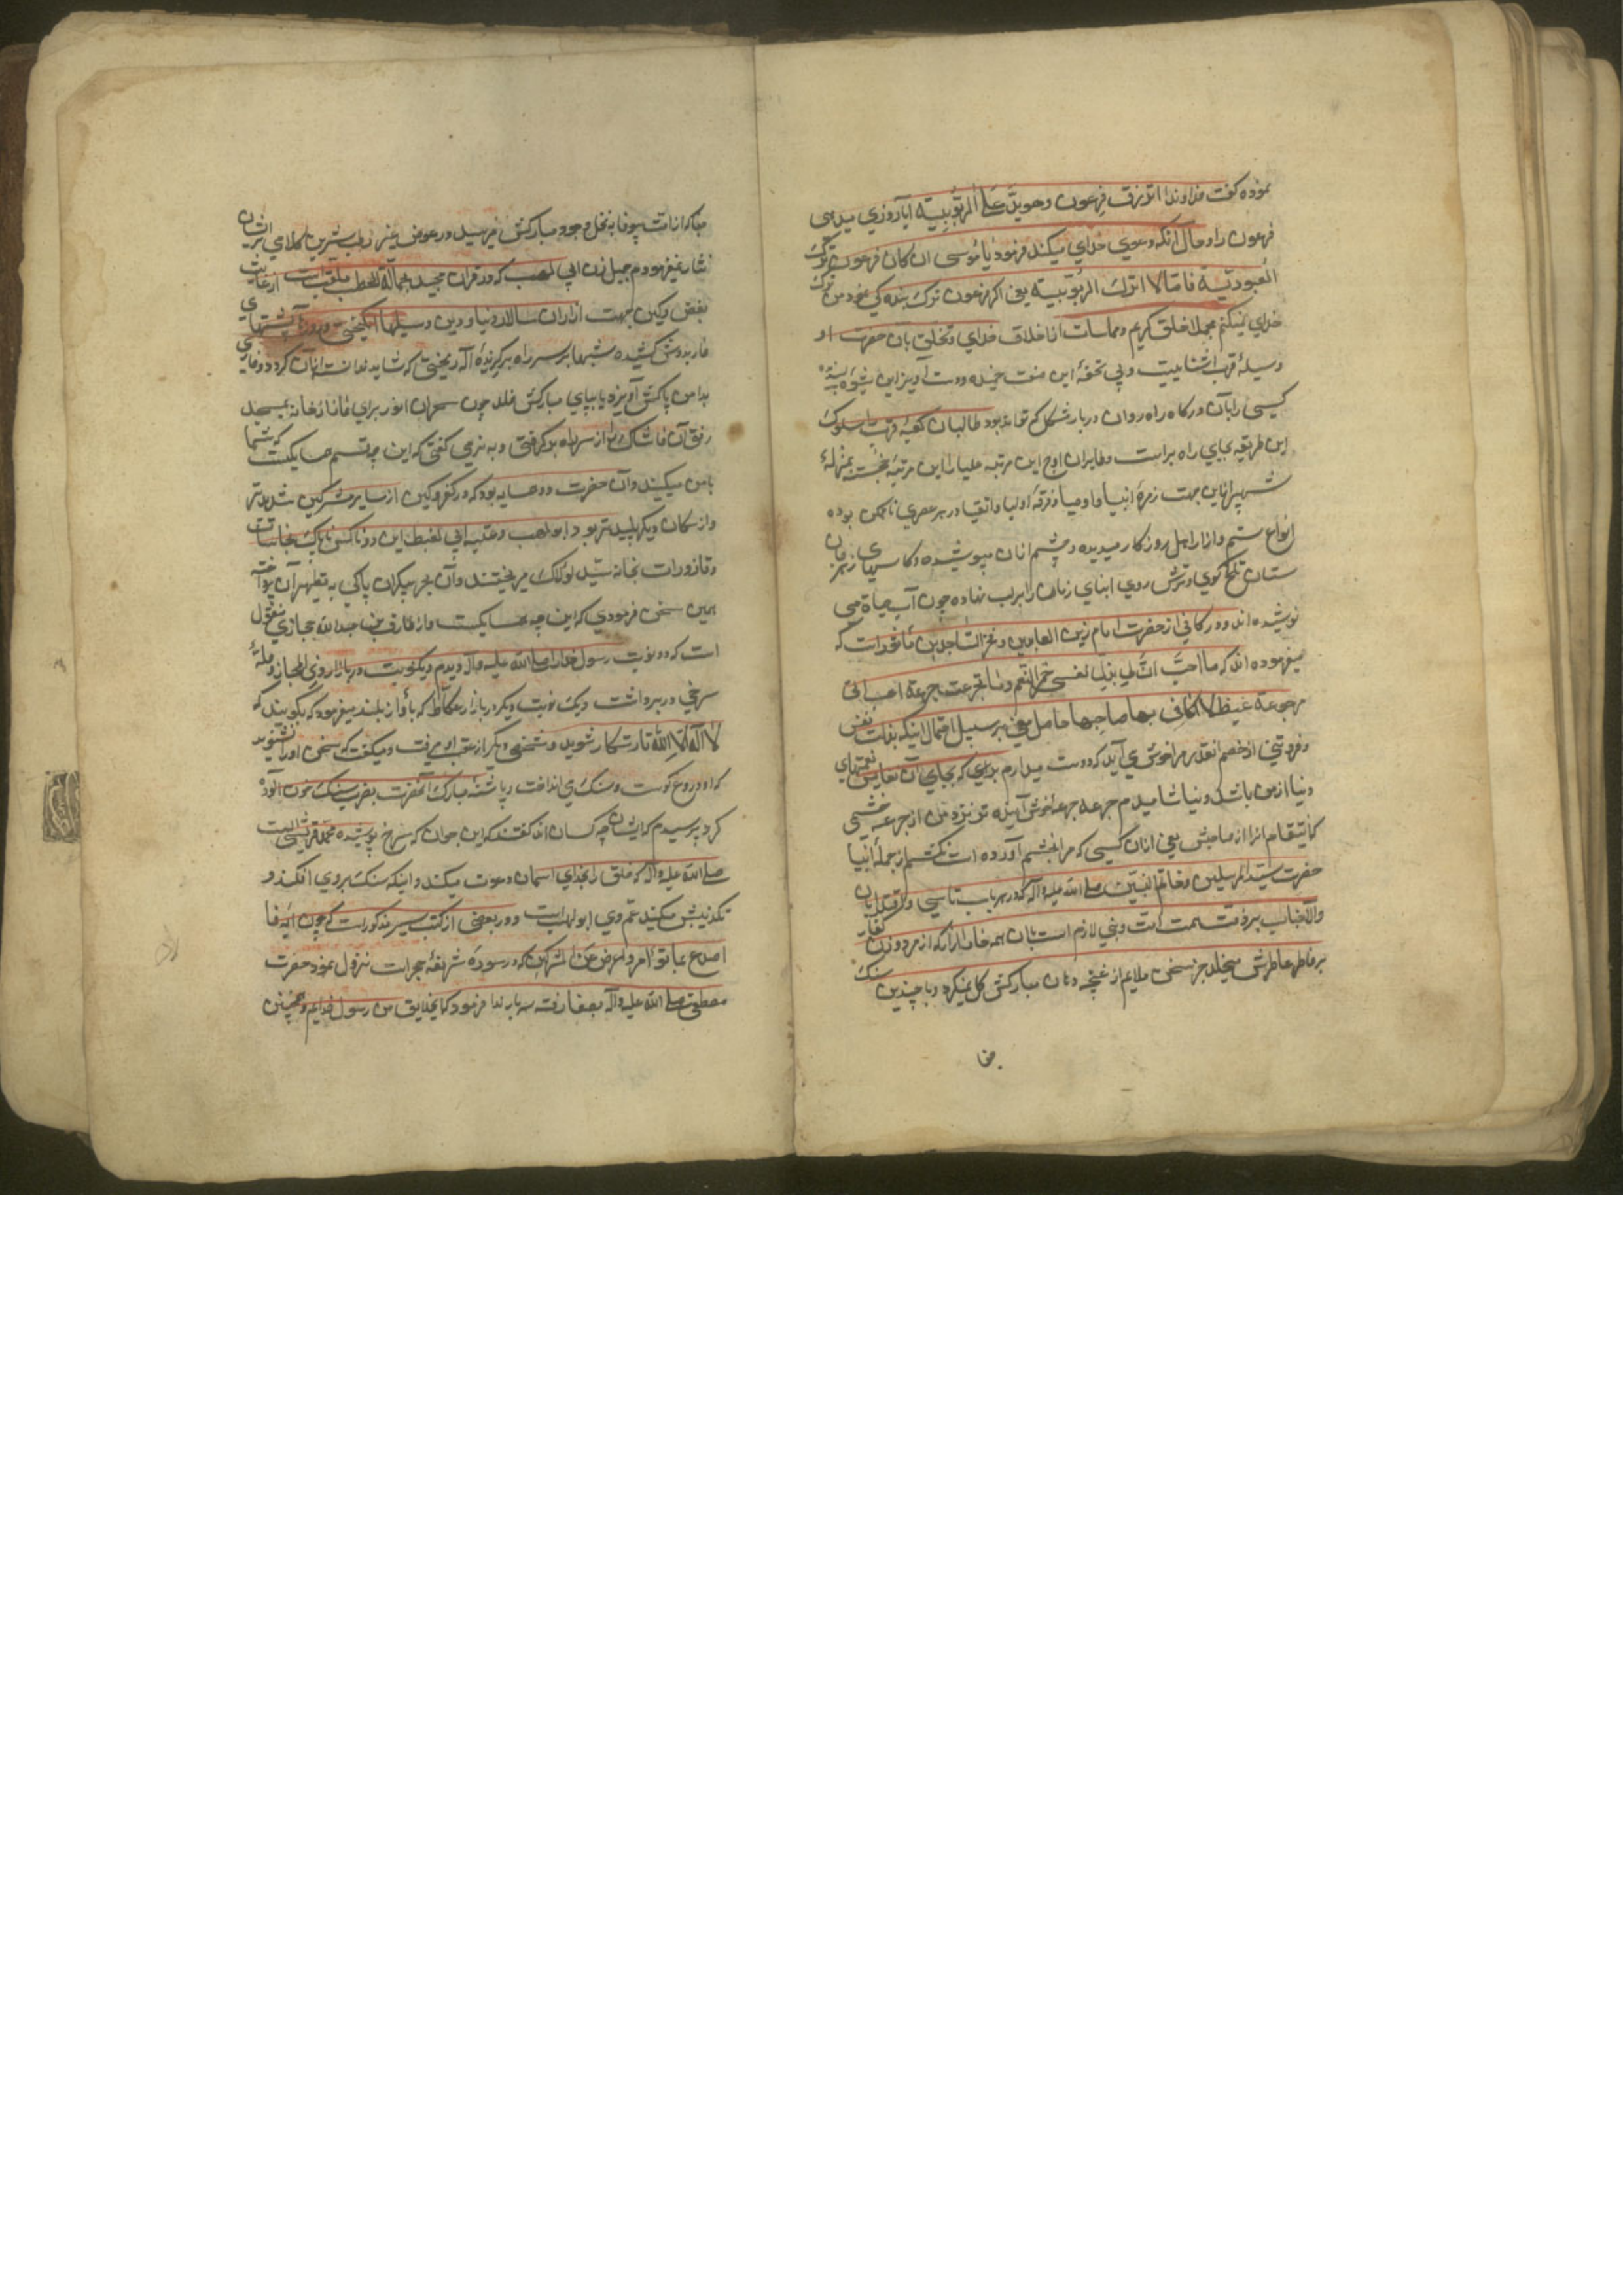 نموده گفت خداوندا اترزق فرعون وهو یدّعی الربوبیة آیا روزی میدهی
فرعون را و حال آنکه دعوی خدای میکند فرمود یا موسی ان کان فرعون ترک
العبودیّة فانا لا اترک الربوبیة یعنی اگر فرعون ترک بندگی نمود من ترک
خدای نمیکنم مجملا خلق کریم و مماسات از اخلاق خدای و تخلق بآن حضرت او
وسیلهٔ قرب آشنائیست و بی تحفهٔ این صفت حمیده و دست آویز این شیوه پسندیده
کسی را بآن درگاه راه روان دربار مشکل که تواند بود طالبان کعبهٔ قربت را سلوک
این طریقه بجای راه براست و طایران اوج این مرتبه علیا را این مرتبهٔ نخست بمنزلهٔ
شهپر ازاین جهت زمرهٔ انبیا و اوصیا و فرقهٔ اولیا و اتقیا در هر عصری تا ممکن بوده
انواع ستم و آزار اهل روزگار میدیده و چشم ازان میپوشیده و کاسهای زهر از
ستان تلخ گوی و ترش روی ابنای زمان را بر لب نهاده چون آب حیاة می
نوشیده اند و در کافی از حضرت امام زین العابدین و فخر الساجدین ماثور است که
میفرموده اند که ما احبّ انّ لی بذل نفسی حمر النعم وما تجرعت جرعة احب الی
من جرعة غیظ لا اکافی بها صاحبها حاصل معنی بر سبیل اجمال اینکه بذلت نفس
و فروتنی از خصم انقدر مرا خوش می آید که دوست میدارم بدی که بجای آن نفایس نعمتهای
دنیا از من باشد و نیاشامیدم جرعه جرعهٔ خوش آینده تر نزد من از جرعه خشمی
که انتقام انرا از صاحبش یعنی ازان کسی که مرا بخشم آورده است نکشم از جمله انبیا
حضرت سید المرسلین و خاتم النبیین صلی الله علیه وآله که در هر باب تاسی و اقتدا بان
والا جناب بر ذمت همت امت وی لازم است بآن همه خار آزار که از مرد و زن کفار
بر خاطر عاطرش میخلید جز سخن ملایم از غنچه دهان مبارکش گل نمیکرد و با چندین سنگ
جفا
جفا که از امت بیوفا به نخل وجود مبارکش میرسید در عوض بغیر رطب شیرین کلامی بر ایشان
نثار نمیفرمود ام جمیل زن ابی لهب که در قران مجید بحمالة الحطب ملقب است از غایت
بغض و کین جهت ازار آن سالار دنیا و دین وسیلها انگیختی و روزها پشتهای
خار بدوش کشیده شبها بر سر راه برگزیدهٔ اله ریختی که شاید
بدامن پاکش آویزد یا بپای مبارکش خلد چون سحران سرور برای نماز از خانه بمسجد
رفتی آن خاشاک را از سر راه بر گرفتی و به نرمی گفتی که این چه قسم همسایگیست که شما
با من میکنید و آن حضرت را دو همسایه بود که در کفر و کین از سایر مشرکین شدیدتر
و از سگان دیگر پلیدتر بود ابو لهب و عقبه ابی معیط این دو ناکس ناپاک نجاسات
و قاذورات بخانهٔ سیّد لولاک میریختند و آن بحر بیکران پاکی به تطهیر آن پرداخته
همین سخن فرمودی که این چه همسایگیست و از طارق بن عبد الله محاربی منقول
است که دو نوبت رسول خدا را صلی الله علیه وآله دیدم یکنوبت در بازار ذی المجاز و حلهٔ
سرخی در بر داشت و یک نوبت دیگر در بازار عکاظ که باواز بلند میفرمود که بگویید که
لا اله الا الله تا رستگار شوید و شخصی دیگر از عقب او میرفت و میگفت که سخن او را نشنوید
که او دروغ گوست و سنگ می انداخت و پاشنهٔ مبارک آنحضرت بضرب سنگ خون آلوده
کرد پرسیدم که ایشان چه کسان اند گفتند که این جوان که سرخ پوشیده محمد قریشیست
صلی الله علیه وآله که خلق را بخدای اسمان دعوت میکند و اینکه سنگ بر وی افکند و
تکذیبش میکند عم وی ابو لهبست و در بعضی از کتب سیر مذکور است که چون آیهٔ فا
اصدع بما تؤمر واعرض عن المشرکین که در سورهٔ شریفهٔ حجرات نزول نمود حضرت
مصطفی صلی الله علیه وآله بصفا رفته سه بار ندا فرمود که ایخلایق من رسول خدایم و همچنین